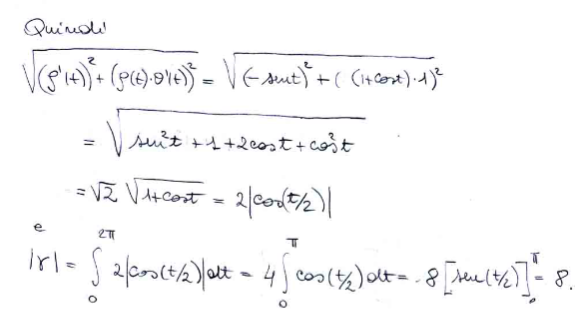 Quindi
√((ρ'(t))² + (ρ(t)·θ'(t))²) = √((-sent)² + ((1+cost)·1)²)
= √(sen²t + 1 + 2cost + cos²t)
= √2 √(1+cost) = 2|cos(t/2)|
e
|γ| = ∫₀^{2π} 2|cos(t/2)|dt = 4∫₀^{π} cos(t/2)dt = 8[sen(t/2)]₀^{π} = 8.